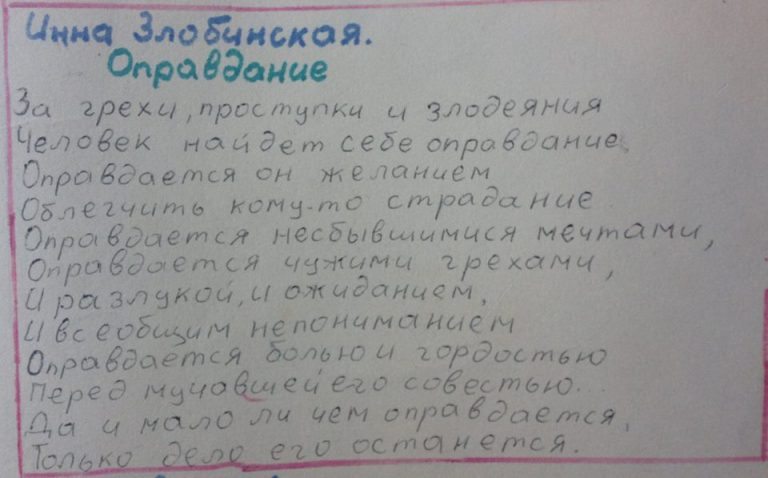 Инна Злобинская.
Оправдание
За грехи, проступки и злодеяния
Человек найдет себе оправдание.
Оправдается он желанием
Облегчить кому-то страдание
Оправдается несбывшимися мечтами,
Оправдается чужими грехами,
И разлукой, и ожиданием,
И всеобщим непониманием
Оправдается болью и гордостью
Перед мучавшей его совестью...
Да и мало ли чем оправдается,
Только дело его останется.